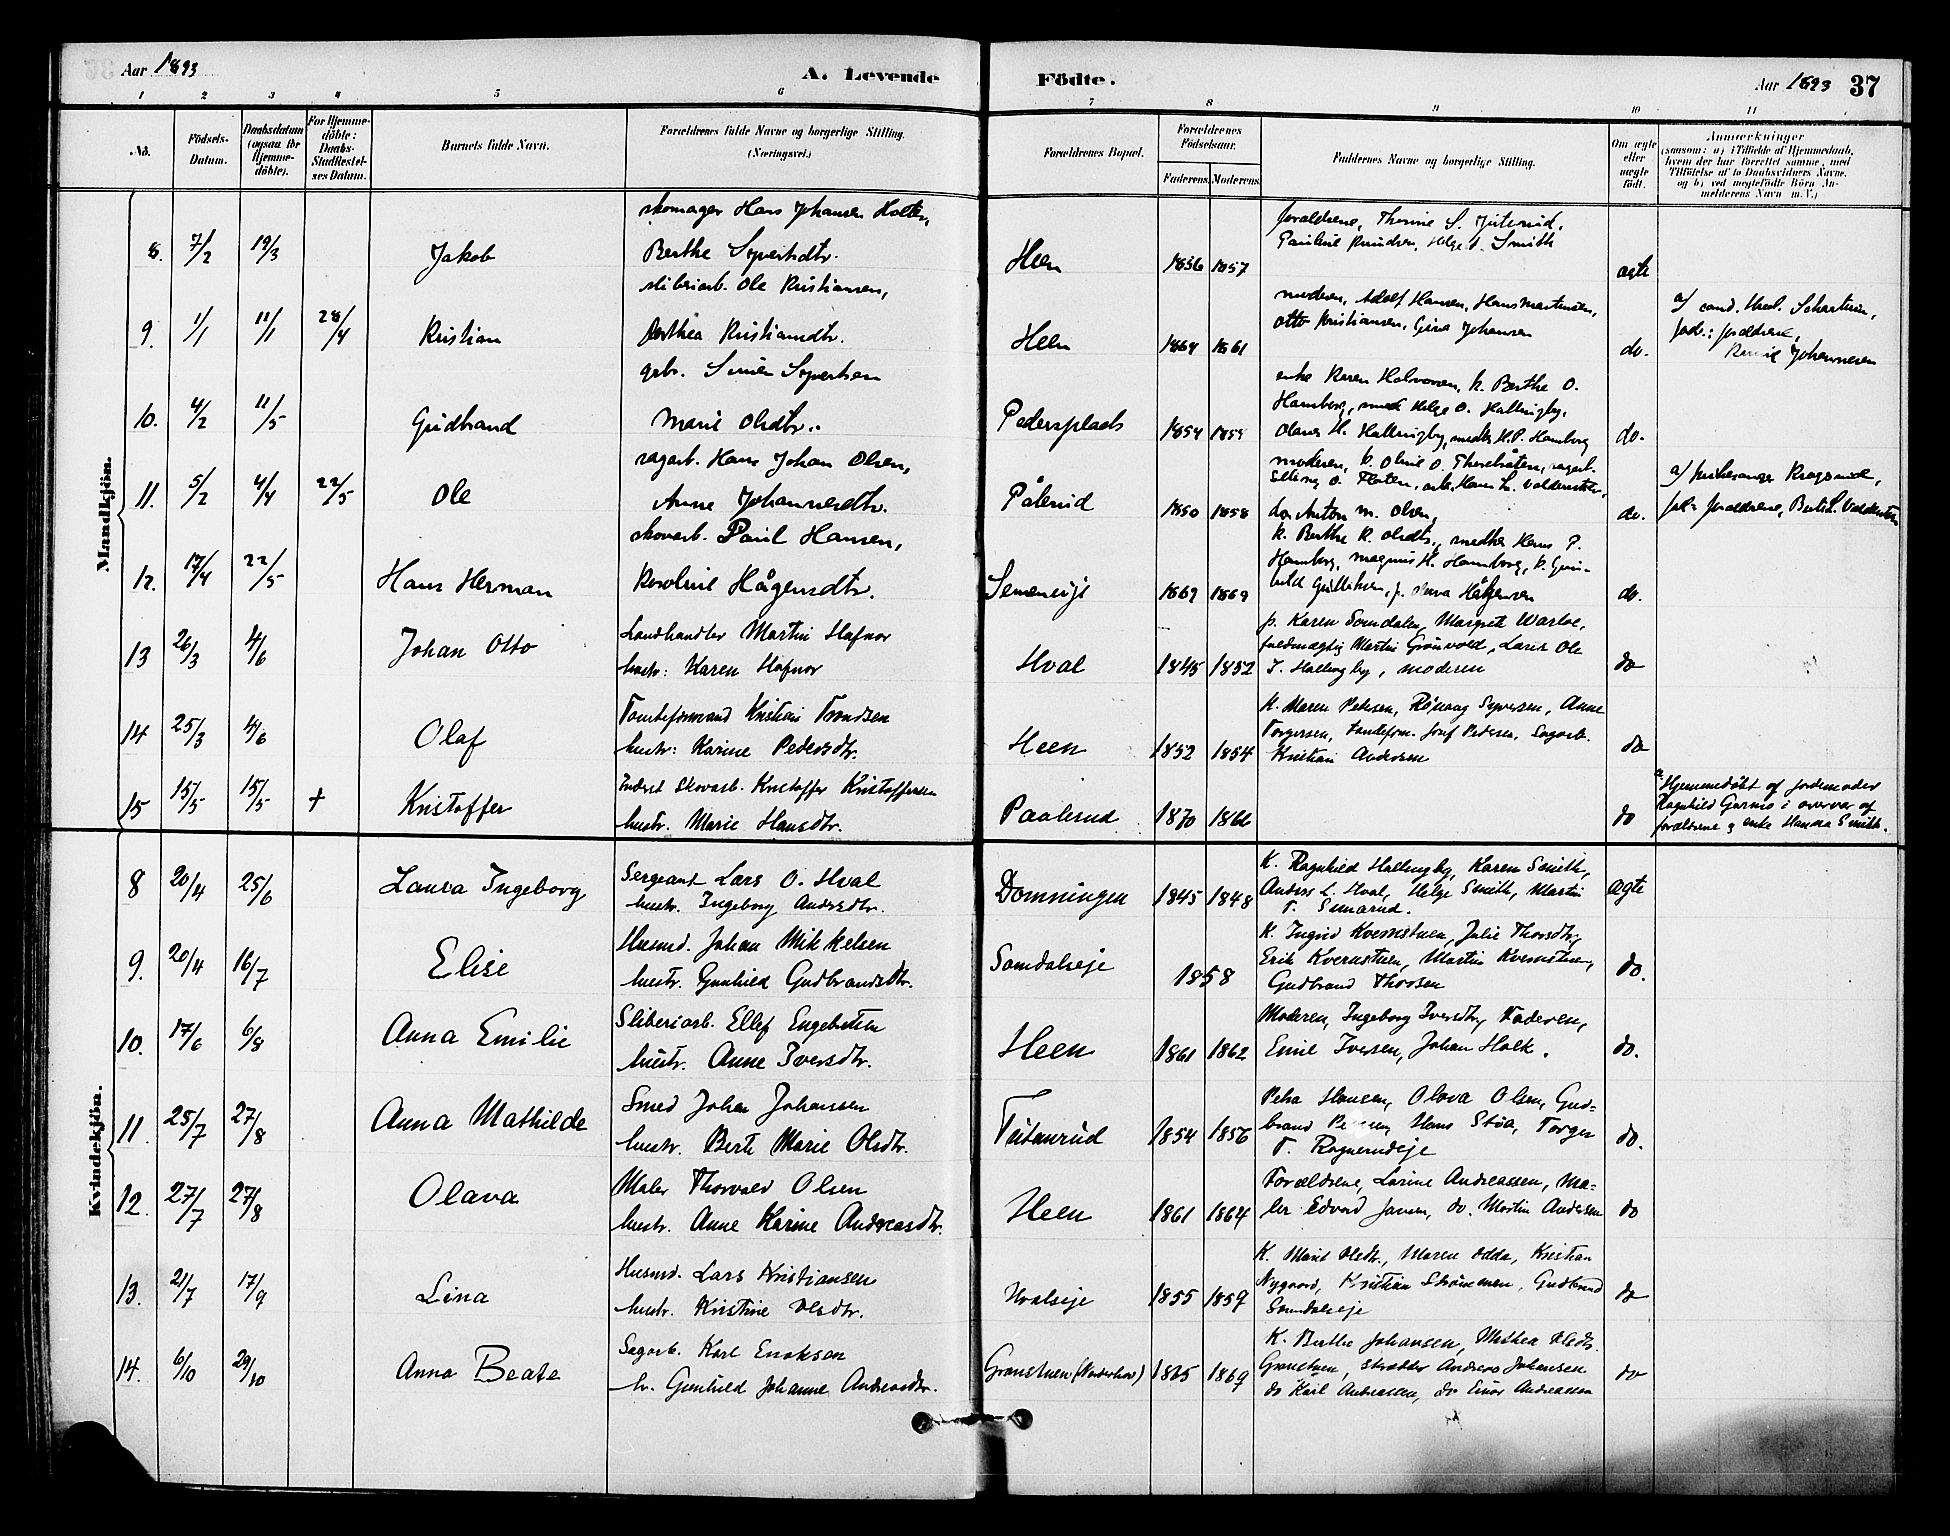 Aar 1893
A. Levende
Födte.
Aar 1893 37
1 2 3 4 5 6 7 8 9 10 11
No.
Födsels-
Datum.
Daabsdatum
(ogsaa for
Hjemme-
döbte).
For Hjemme-
döbte:
Daabs-
Stadfæstel-
ses Datum.
Barnets fulde Navn.
Forældrenes fulde Navne og borgerlige Stilling.
(Næringsvei.)
Forældrenes Bopæl.
Forældrenes
Födselsaar.
Faderens. Moderens.
Faddernes Navne og borgerlige Stilling.
Om ægte
eller
uægte
født.
Anmærkninger
(saasom: a) i Tilfælde af Hjemmedaab,
hvem der har forrettet samme, med
Tilføielse af to Daabsvidners Navne,
og b) ved uægtefødte Börn An-
melderens Navn m. V.)
Mandkjön.
skomager Hans Johansen Holter,
8. 7/2 19/3 Jakob Berthe Syvertsdtr. Heen 1856 1857
forældrene,
Pauline Knudsen, Helge Smith
ægte
Ole Kristiansen,
9. 1/1 11/1 28/4 Kristian Kristiansdtr. Heen 1864 1861
moderen, Adolf Hansen, Hans Martinsen,
Otto Kristiansen, Gina Johansen
do.
a/ cand. theol.
forældrene,
Johannesen
gbr. Simen Syvertsen
10. 4/2 11/5 Gudbrand Marie Olsdtr. Pedersplads 1854
enke Karen Halvorsen, k. Berthe O.
Hamberg, Helge O. Hallingby,
Hallingby, H.P. Hamberg
do.
sagarb. Hans Johan Olsen,
11. 5/2 4/4 22/5 Ole Anne Johannesdtr. Pålerud 1850 1858
moderen, k. Oline O.
Anton M. Olsen,
do.
a/
forældrene,
skovarb. Paul Hansen,
12. 17/4 22/5 Hans Herman Karoline Hågensdtr. 1869 1869
k. Berthe K. Olsdtr., Hans P.
Hamberg, Magnus H. Hamberg, k. Gun-
hild p. Hågensen
do.
13 26/3 4/6 Johan Otto Landhandler Martin Hafnor
hustr: Karen Hafnor
Hval 1845 1852
p. Karen Somdalen, Margrete Warloe,
fuldmægtig Martin Grönvold, Ole
Hallingby, moderen
do
14 25/3 4/6 Olaf Tomteformand Kristian Trondsen
hustr: Karine Pedersdtr.
Heen 1852 1854
K. Maren Petersen, Rönnaug Syversen, Anne
Torgersen, tomteform. Josef Pedersen, Sagarb.
Kristian Andersen
do
15 15/5 15/5 + Kristoffer Inderst Skovarb. Kristoffer Kristoffersen
hustr. Marie Hansdtr.
Paalerud 1870 1866
do
a Hjemmedöbt af jordemoder
Ragnhild Garmo i overvær af
forældrene og enke Hanna Smith.
Kvindekjön.
8 20/4 25/6 Laura Ingeborg Sergeant Lars O. Hval
hustr. Ingeborg Andersdtr.
Domningen 1845 1848
K. Ragnhild Hallingby, Karen Smith,
Anders L. Hval, Helge Smith, Martin
T. Semerud.
ægte
9. 20/4 16/7 Elise Husmd. Johan Mikkelsen
hustr. Gunhild Gudbrandsdtr.
Somdalseje 1858
K. Ingrid Kvernstuen, Julie Thorsdtr,
Erik Kvernstuen, Martin Kvernstuen,
Gudbrand Thorsen
do.
10. 17/6 6/8 Anna Emilie Sliberiarb. Ellef Engebretsen
hustr. Anne Iversdtr.
Heen 1861 1862
Moderen, Ingeborg Iversdtr, Faderen,
Emil Iversen, Johan Holk.
do.
11. 25/7 27/8 Anna Mathilde Smed Johan Johansen
hustr. Berte Marie Olsdtr.
1854 1856
Petra Hansen, Olava Olsen, Gud-
brand Hans Stöa, Torger
T. Ragnerudeje
do.
12. 27/7 27/8 Olava Maler Thorvald Olsen
hustr. Anne Karine Andreasdtr.
Heen 1861 1864
Forældrene, Larine Andreassen, Ma-
ler Edvard Jansen, do. Martin Andersen
do
13. 2/7 17/9 Lina Husmd. Lars Kristiansen
hustr. Kristine Olsdtr.
Hvalseje 1855 1859
K. Marit Olsdtr., Maren Odda, Kristian
Nygaard, Kristian Strömmen, Gudbrand
Somdalseje
do
14. 6/10 29/10 Anna Beate Sagarb. Karl Enoksen
h. Gunhild Johanne Andreasdtr.
Granstuen (Norderhov) 1865 1869
K. Berthe Johansen, Mathea Olsdtr.
Granstuen, skrædder Andreas Johansen
do Karl Andreassen, do Einar Andreassen
do